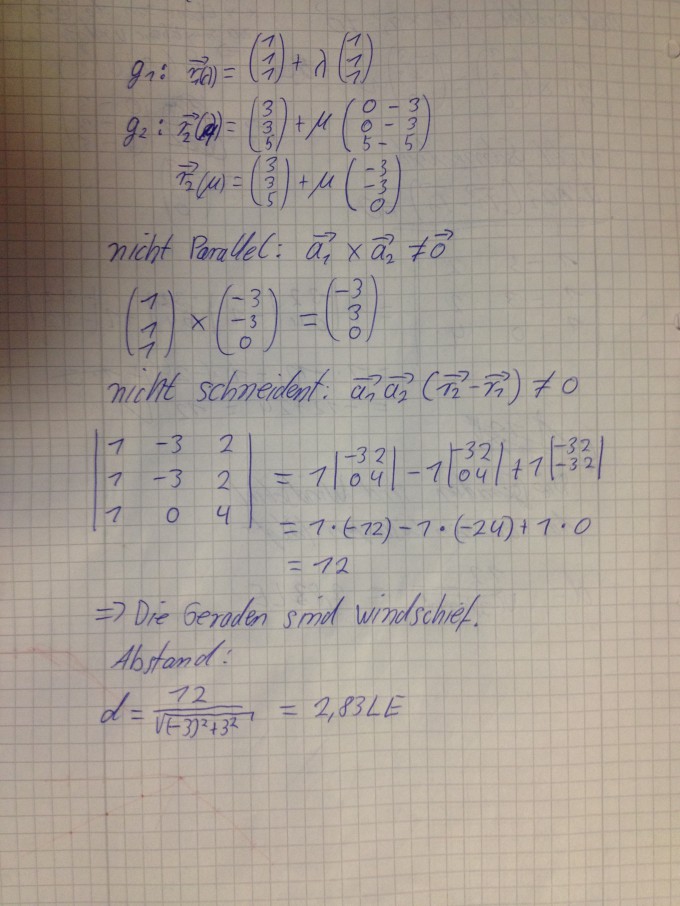 g1: r⃗1(λ) = (1 1 1) + λ (1 1 1)
g2: r⃗2() = (3 3 5) + μ (0 - 3 0 - 3 5 - 5)
r⃗2(μ) = (3 3 5) + μ (-3 -3 0)
nicht Parallel: a⃗1 × a⃗2 ≠ o⃗
(1 1 1) × (-3 -3 0) = (-3 3 0)
nicht schneident: a⃗1 a⃗2 (r⃗2 - r⃗1) ≠ 0
|1 -3 2
1 -3 2
1 0 4| = 1 |-3 2 0 4| - 1 |-3 2 0 4| + 1 |-3 2 -3 2|
= 1·(-12) - 1·(-24) + 1·0
= 12
=> Die Geraden sind windschief.
Abstand:
d = 12 / √((-3)²+3²) = 2,83 LE